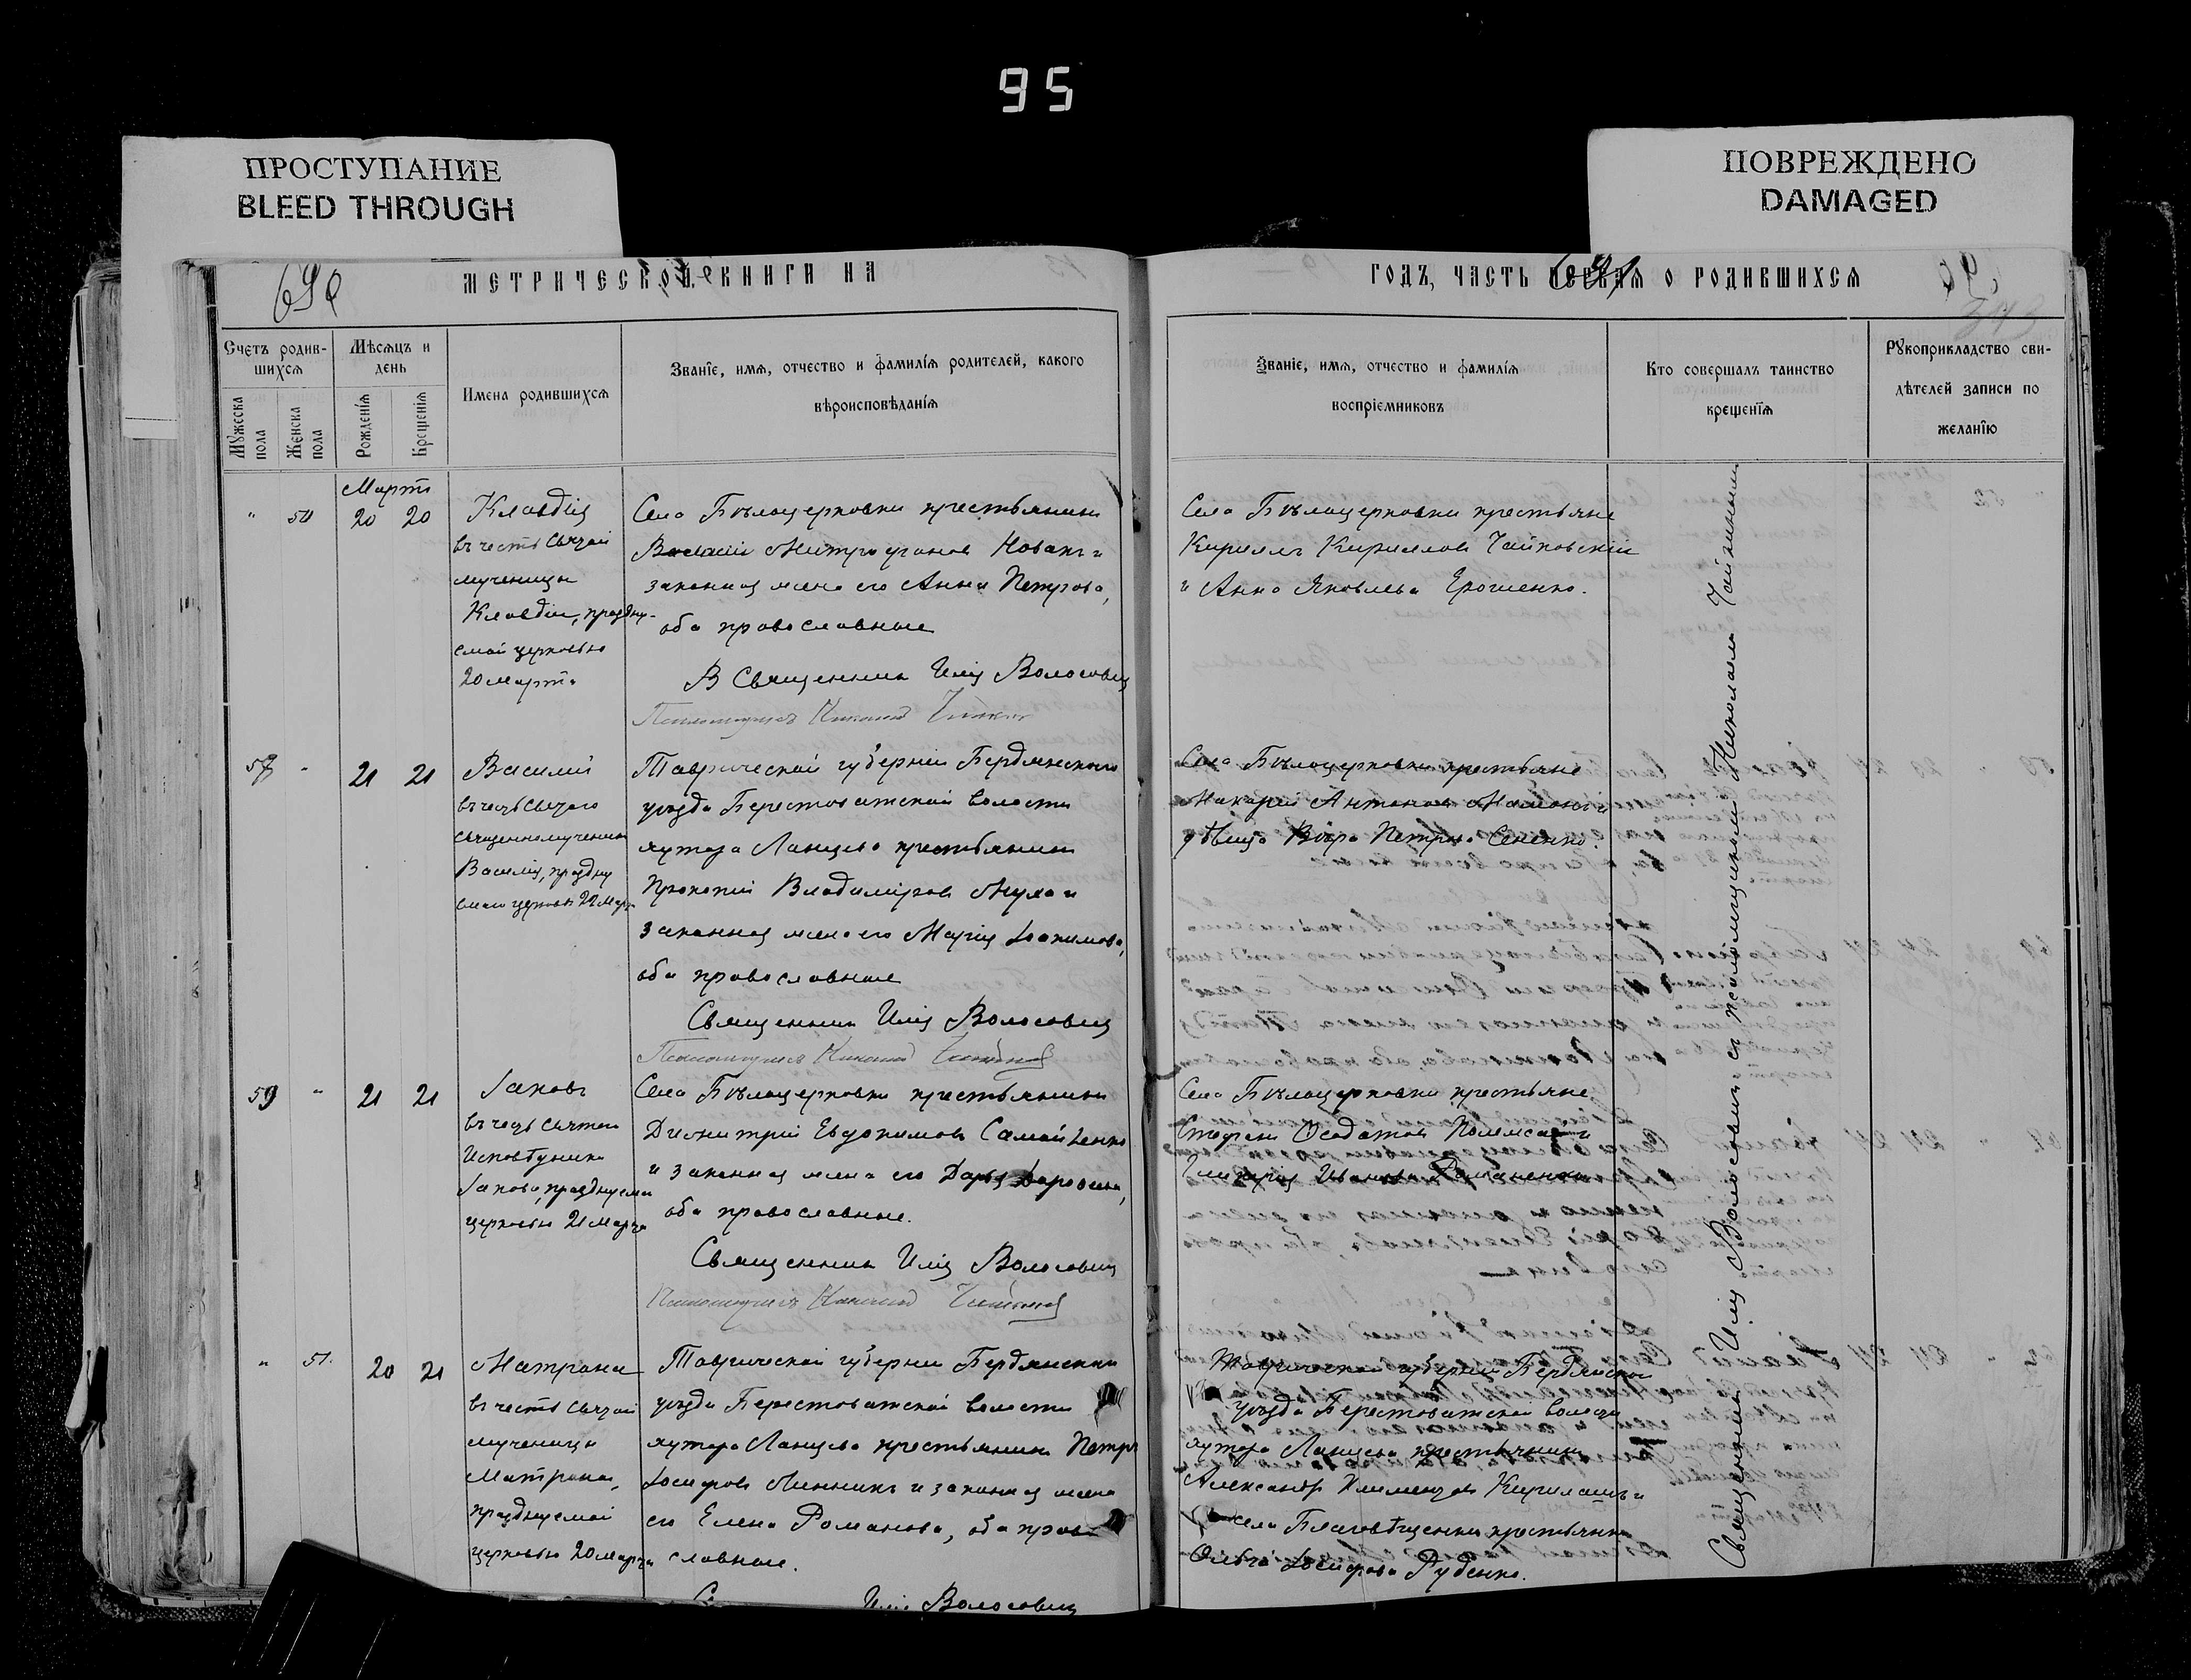 95
ПРОСТУПАНИЕ
BLEED THROUGH
ПОВРЕЖДЕНО
DAMAGED
МЕТРИЧЕСКОЙ КНИГИ НА
ГОДЪ, ЧАСТЬ ПЕРВАЯ О РОДИВШИХСЯ
Счетъ родив-
шихся
Мужеска пола
Женска пола
Мѣсяцъ и
день
Рожденія
Крещенія
Имена родившихся
Званіе, имя, отчество и фамилія родителей, какого
вѣроисповѣданія
Званіе, имя, отчество и фамилія
воспріемниковъ
Кто совершалъ таинство
крещенія
Рукоприкладство сви-
дѣтелей записи по
желанію
Мартъ
" 50 20 20
Клавдія
въ честь святой
мученицы
Клавдіи, праздну-
емой церковью
20 марта
Села Бѣлоцерковки крестьянинъ
Василій Митрофановъ Новакъ и
законная жена его Анна Петрова,
оба православные
Священникъ Илія Волосовичъ
Псаломщикъ Николай
Села Бѣлоцерковки крестьяне
Кириллъ Кирилловъ Чайковскій
и Анна Яковлева Ерошенко.
" 21 21
Василій
въ честь святого
священномученика
Василія, праздну
емаго церковью 22 марта
Таврической губерніи Бердянскаго
уѣзда Берестоватской волости
хутора Ланцево крестьянинъ
Прокопій Владиміровъ Муха и
законная жена его Марія Іоакимова,
оба православные
Священникъ Илія Волосовичъ
Псаломщикъ Николай
Села Бѣлоцерковки крестьяне
Макарій Антоновъ и
дѣвица Вѣра Петрова Сененко.
59 " 21 21
Іаковъ
въ честь святого
Исповѣдника
Іакова, празднуемаго
церковью 21 марта
Села Бѣлоцерковки крестьянинъ
Димитрій Евдокимовъ Самойленко
и законная жена его Дарья
оба православные.
Священникъ Илія Волосовичъ
Псаломщикъ Николай
Села Бѣлоцерковки крестьяне
Стефанъ
Гликерія Иванова Романенко
" 51. 20 21
Матрона
въ честь святой
мученицы
Матроны,
празднуемой
церковью 20 марта
Таврической губерніи Бердянскаго
уѣзда Берестоватской волости
хутора Ланцево крестьянинъ Петръ
Іосифовъ Линникъ и законная жена
его Елена Романова, оба право
славные.
Илія Волосовичъ
Таврической губерніи Бердянскаго
уѣзда Берестоватской волости
хутора Ланцева крестьянинъ
Александръ Климентовъ и
села Благовѣщенки крестьянка
Ольга Іосифова Руденко.
Священникъ Илія Волосовичъ съ псаломщикомъ Николаемъ Чайкинымъ